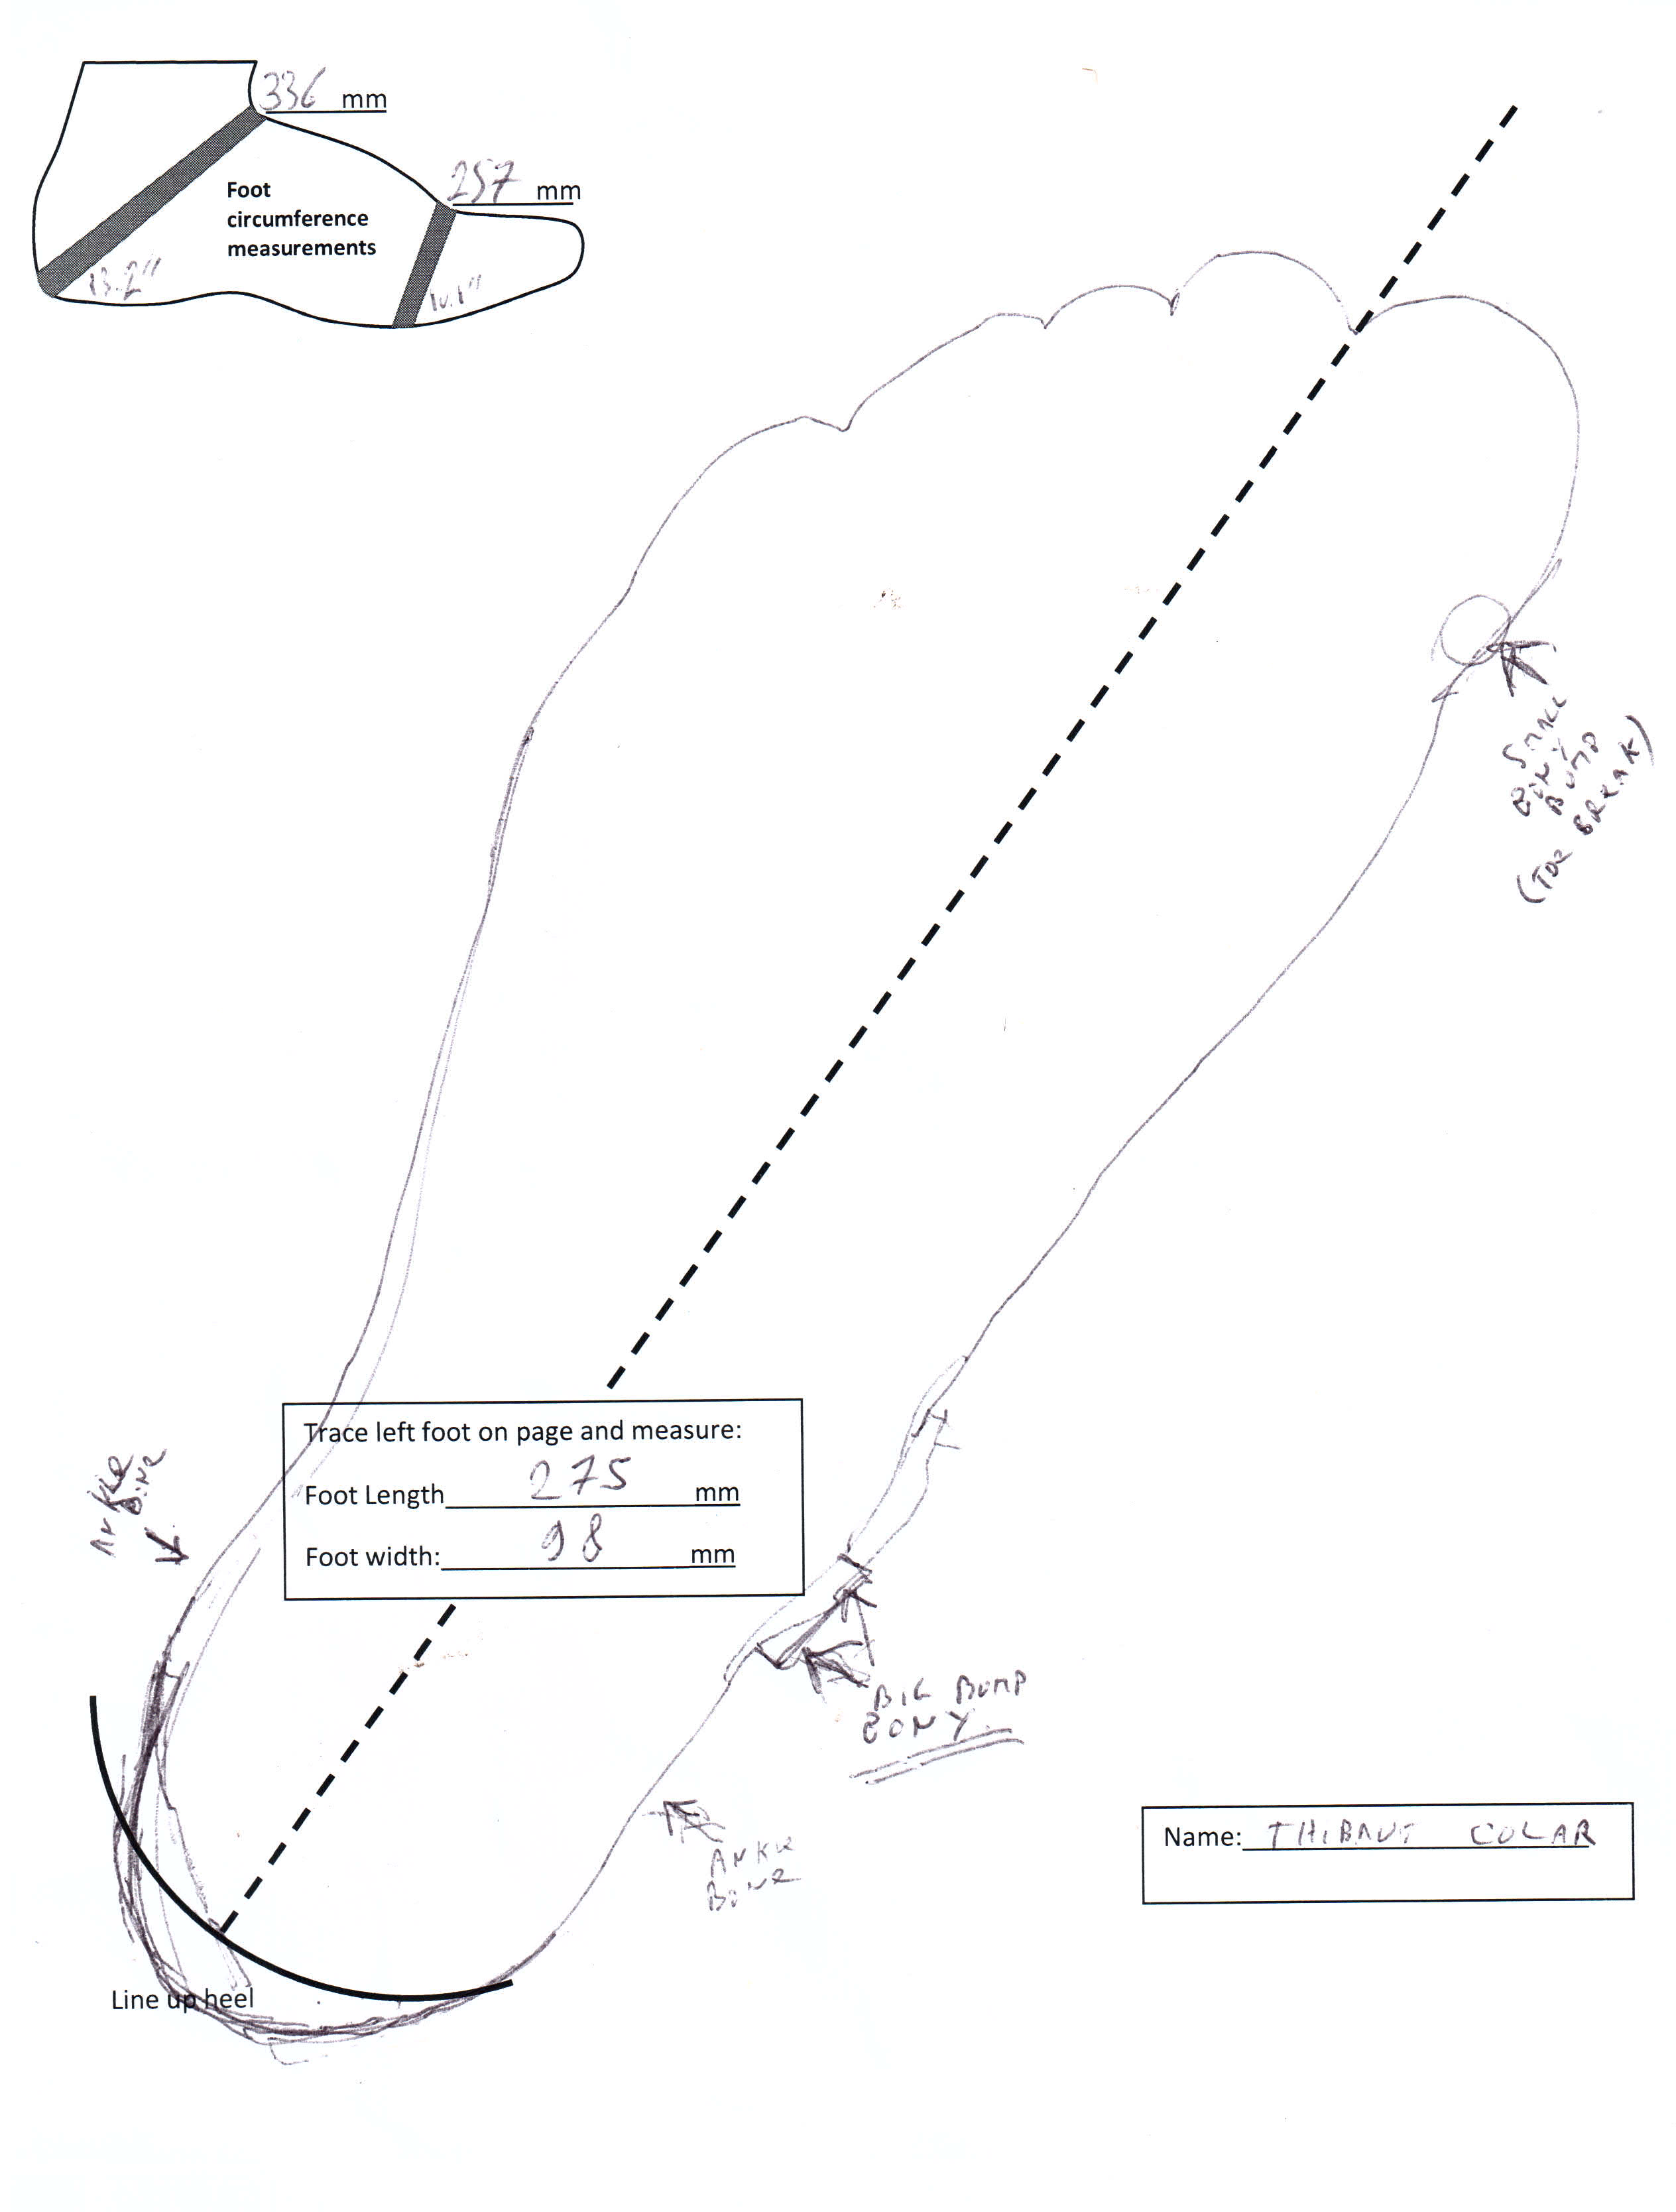 336 mm
257 mm
Foot
circumference
measurements
13.2"
10.1"
SMALL
BONY
BUMP
(TOE BREAK)
Trace left foot on page and measure:
Foot Length 275 mm
Foot width: 98 mm
ANKLE
BONE
BIG BUMP
BONY
ANKLE
BONE
Name: THIBAUT COLAR
Line up heel